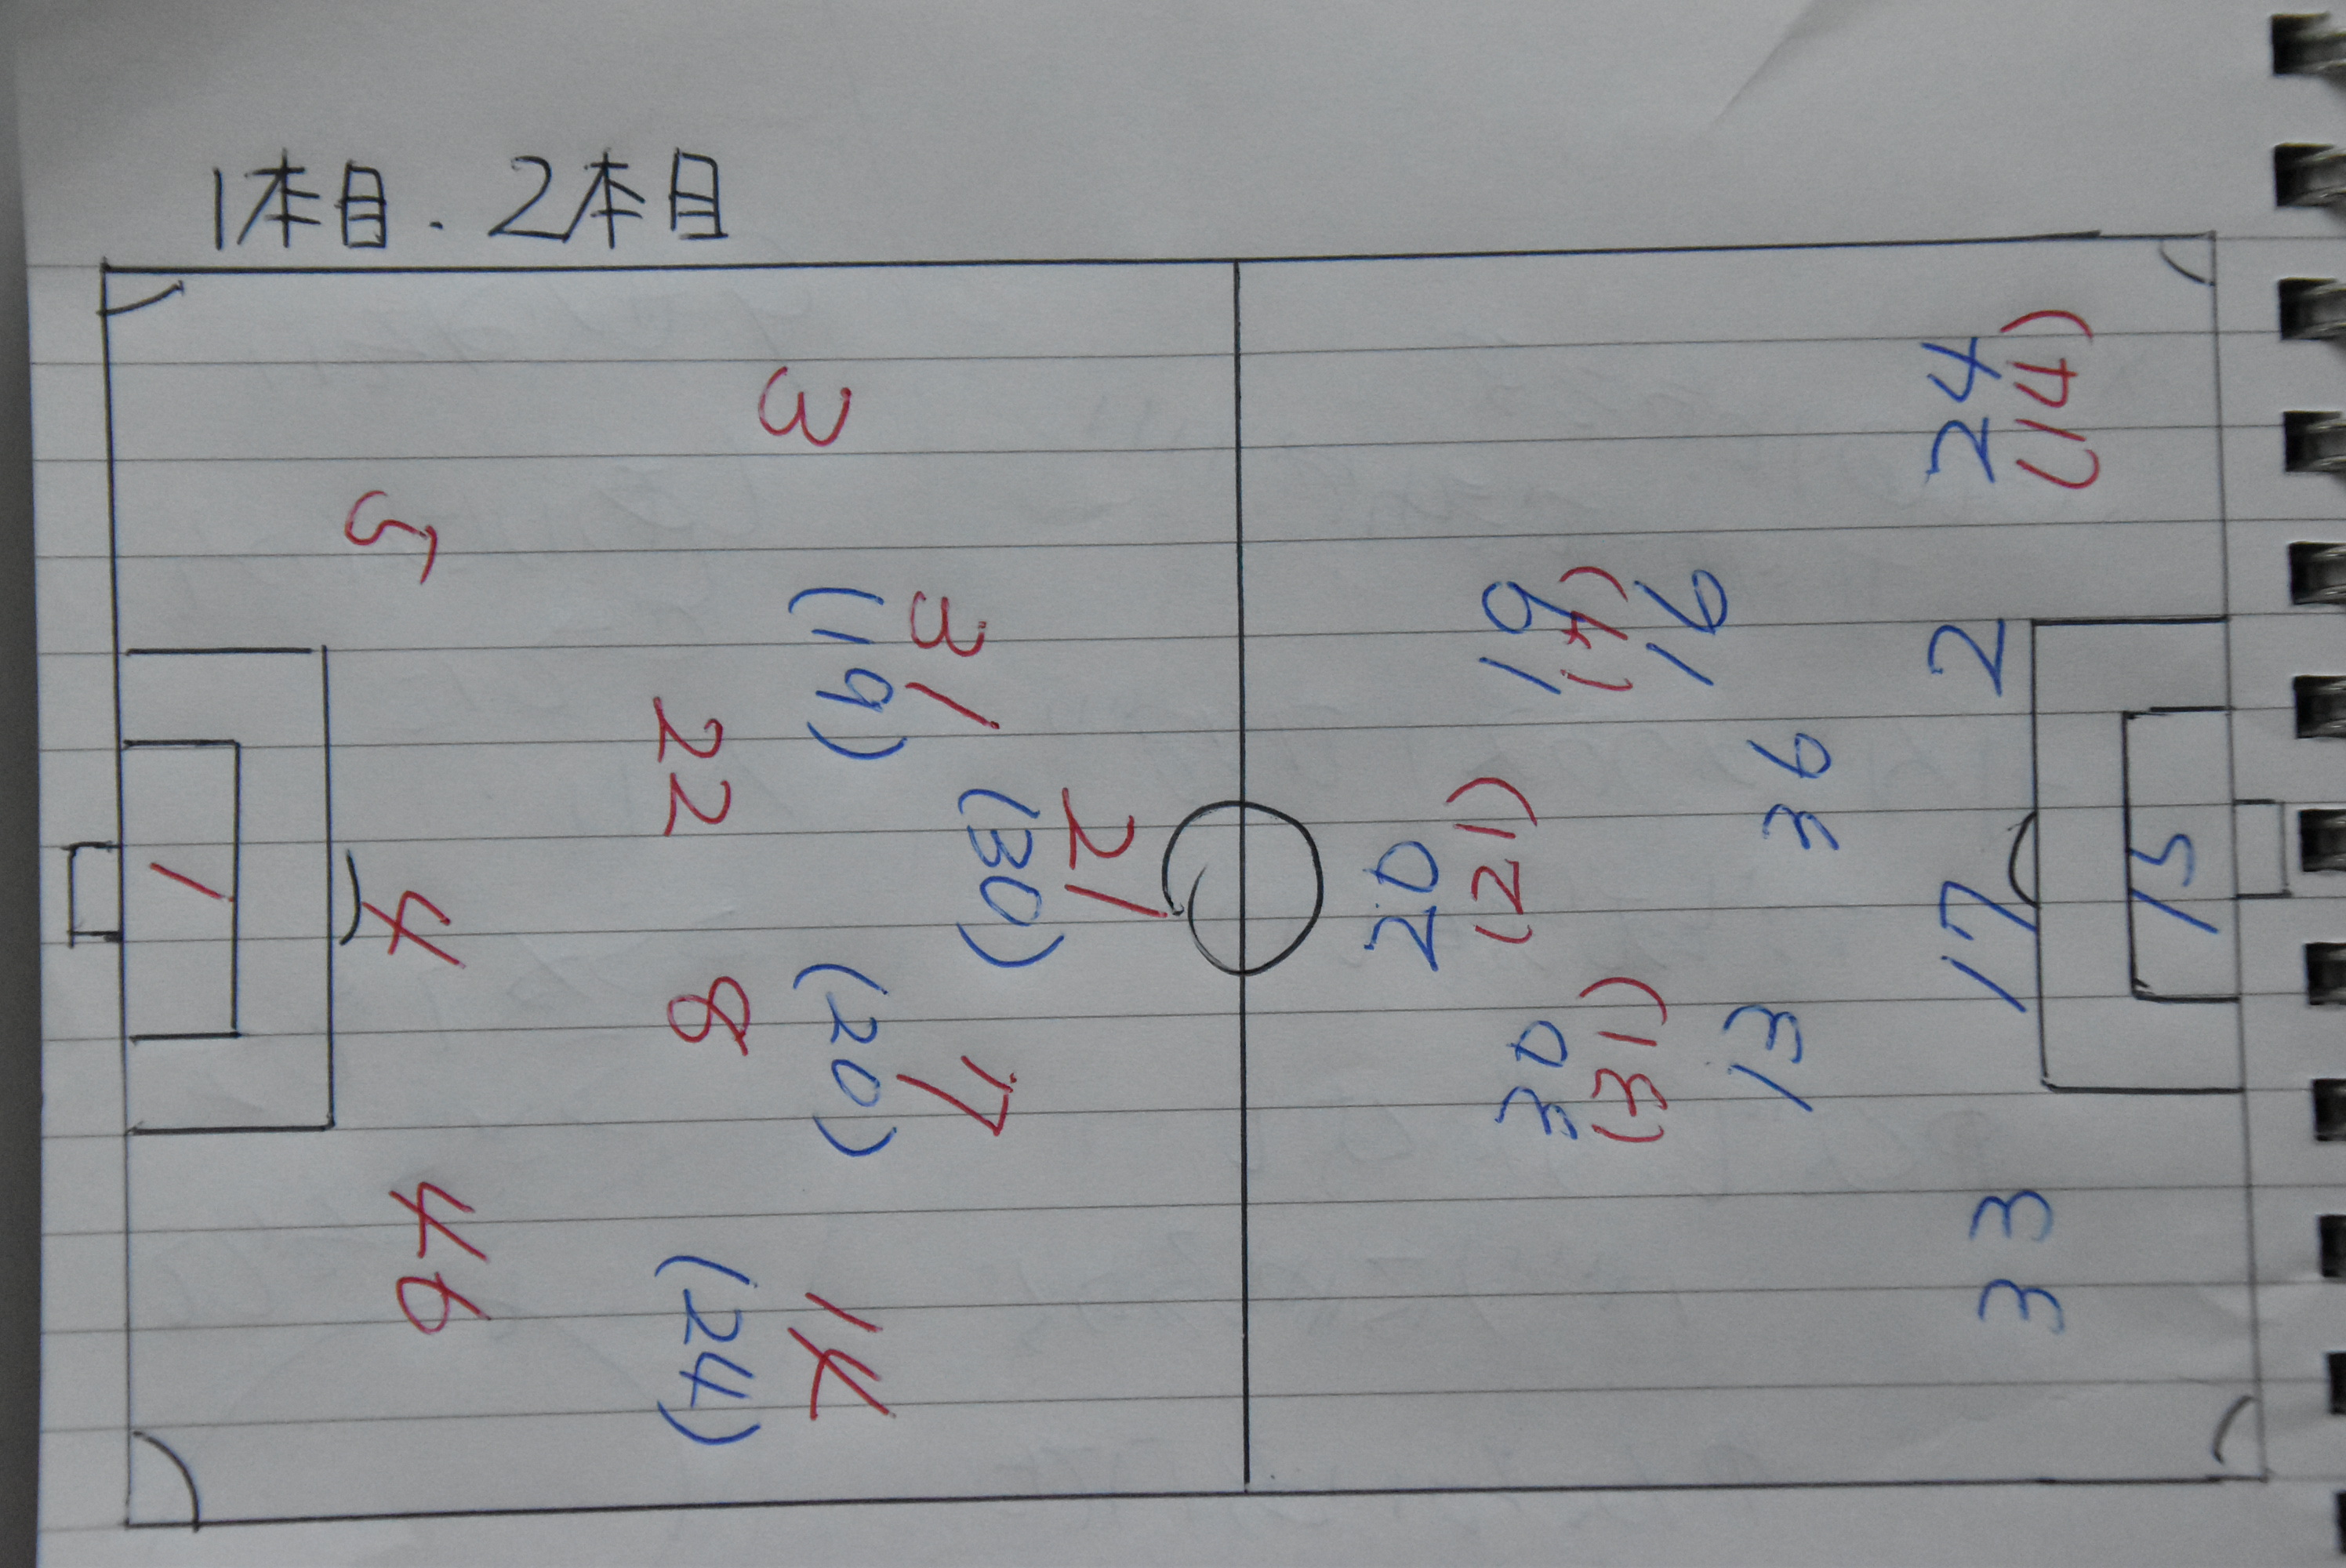 1本目.2本目
3
5
31
(19)
22
21
(30)
1
4
8
7
(20)
46
14
(24)
24
(14)
19
(7)
16
2
36
20
(21)
17
15
30
(31)
13
33